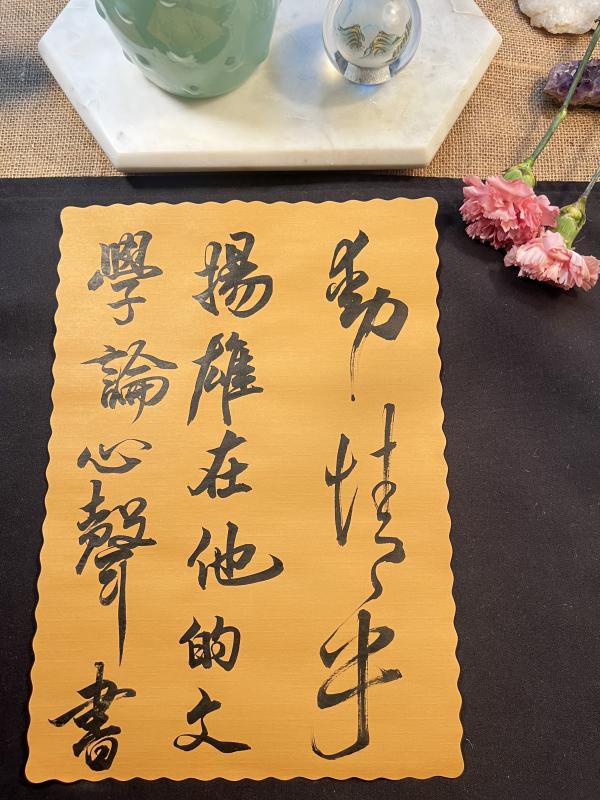 動情乎
揚雄在他的文
學論心聲書